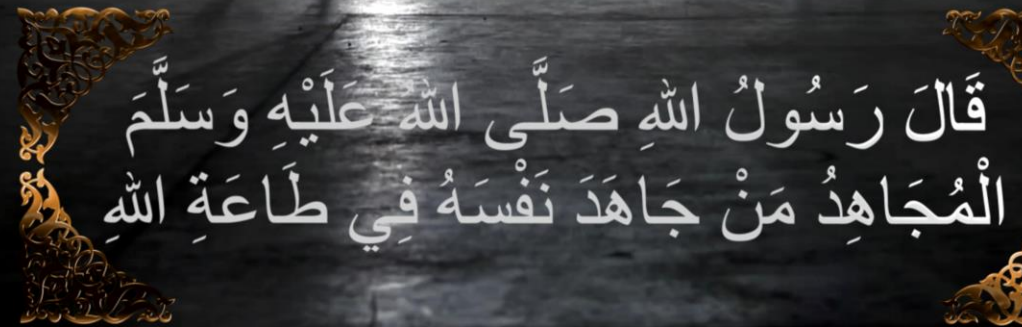 قَالَ رَسُولُ اللهِ صَلَّى اللهُ عَلَيْهِ وَسَلَّمَ
الْمُجَاهِدُ مَنْ جَاهَدَ نَفْسَهُ فِي طَاعَةِ اللهِ